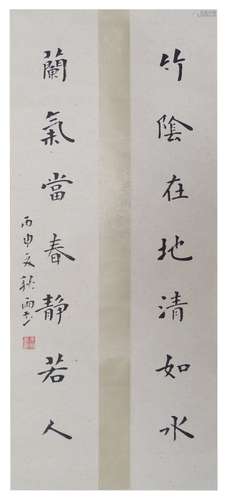 竹陰在地清如水
蘭氣當春靜若人
丙申夏